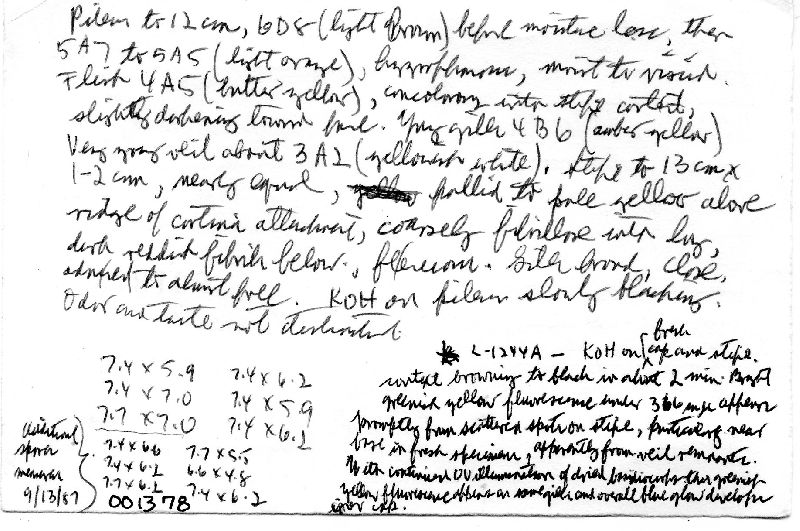 Pileus to 12 cm, 6D8 (light brown) before moisture loss, then
5A7 to 5A5 (light orange), hygrophanous, moist to viscid.
Flesh 4A5 (butter yellow), concolorous into stipe context,
slightly darkening toward base. Young gills 4B6 (amber yellow)
Very young veil about 3A2 (yellowish white). Stipe to 13 cm x
1-2 cm, nearly equal, pallid to pale yellow above
ridge of cortina attachment, coarsely fibrillose into long,
dark reddish fibrils below, flexuous. Gills broad, close,
adnexed to almost free. KOH on pileus slowly blacking.
Odor and taste not distinctive
* L-1244A – KOH on fresh cap and stipe.
surface browning to black in about 2 min. Bright
greenish yellow fluorescence under 366 mµ appears
promptly from scattered spots on stipe, particularly near
base in fresh specimen, apparently from veil remnants.
With continued UV illumination of dried basidiocarps this greenish-
yellow fluorescence appears on some gills and overall blue glow develops
over cap.
7.4 x 5.9 7.4 x 6.2
7.4 x 7.0 7.4 x 5.9
7.7 x 7.0 7.4 x 6.2
Additional
spores
measured
9/13/87
7.4 x 6.6 7.7 x 5.5
7.4 x 6.2 6.6 x 4.8
7.7 x 6.2 7.4 x 6.2
001378